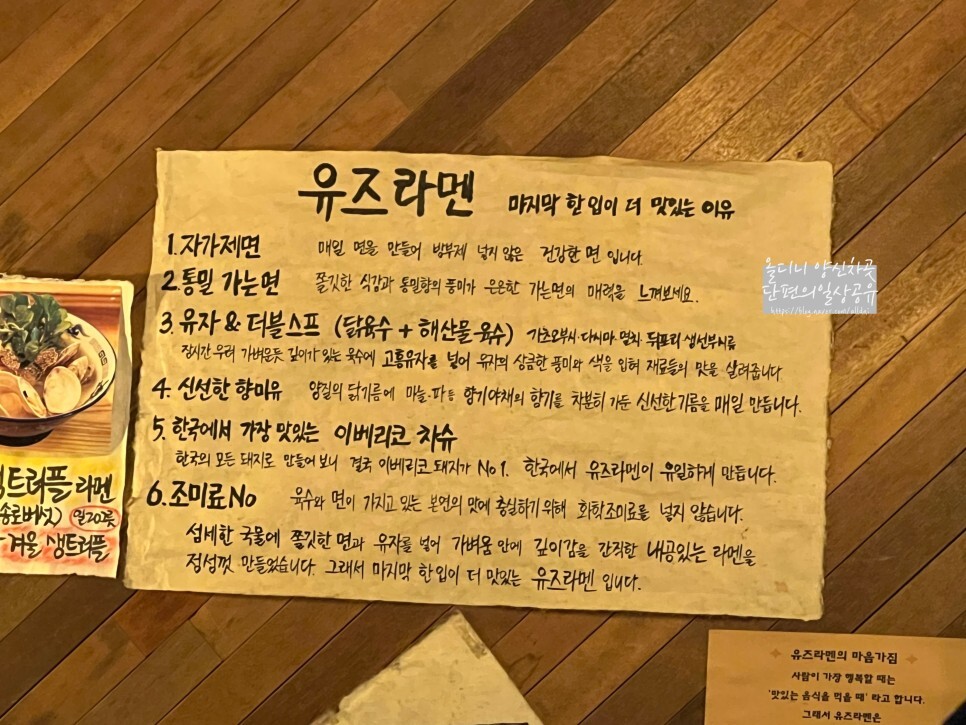 유즈라멘 마지막 한입이 더 맛있는 이유
1. 자가제면 매일 면을 만들어 방부제 넣지 않은 건강한 면 입니다.
2. 통밀 가는면 쫄깃한 식감과 통밀향의 풍미가 은은한 가는면의 매력을 느껴보세요.
3. 유자 & 더블스프 (닭육수 + 해산물 육수) 가츠오부시. 다시마. 멸치. 뒤포리 생선부시류
장시간 우려 가벼운듯 깊이가 있는 육수에 고흥유자를 넣어 유자의 상큼한 풍미와 색을 입혀 재료들의 맛을 살려줍니다
4. 신선한 향미유 양질의 닭기름에 마늘.파 등 향기야채의 향기를 차분히 가둔 신선한 기름을 매일 만듭니다.
5. 한국에서 가장 맛있는 이베리코 차슈
한국의 모든 돼지로 만들어 보니 결국 이베리코 돼지가 No 1. 한국에서 유즈라멘이 유일하게 만듭니다.
6. 조미료 No 육수와 면이 가지고 있는 본연의 맛에 충실하기 위해 화학조미료를 넣지 않습니다.
섬세한 국물에 쫄깃한 면과 유자를 넣어 가벼움 안에 깊이감을 간직한 내공있는 라멘을
정성껏 만들었습니다. 그래서 마지막 한입이 더 맛있는 유즈라멘 입니다.
올디니 양신차곳
단편의일상공유
트러플 라멘
송로버섯) 일20그릇
겨울 생트러플
유즈라멘의 마음가짐
사람이 가장 행복할 때는
'맛있는 음식을 먹을 때' 라고 합니다.
그래서 유즈라멘은